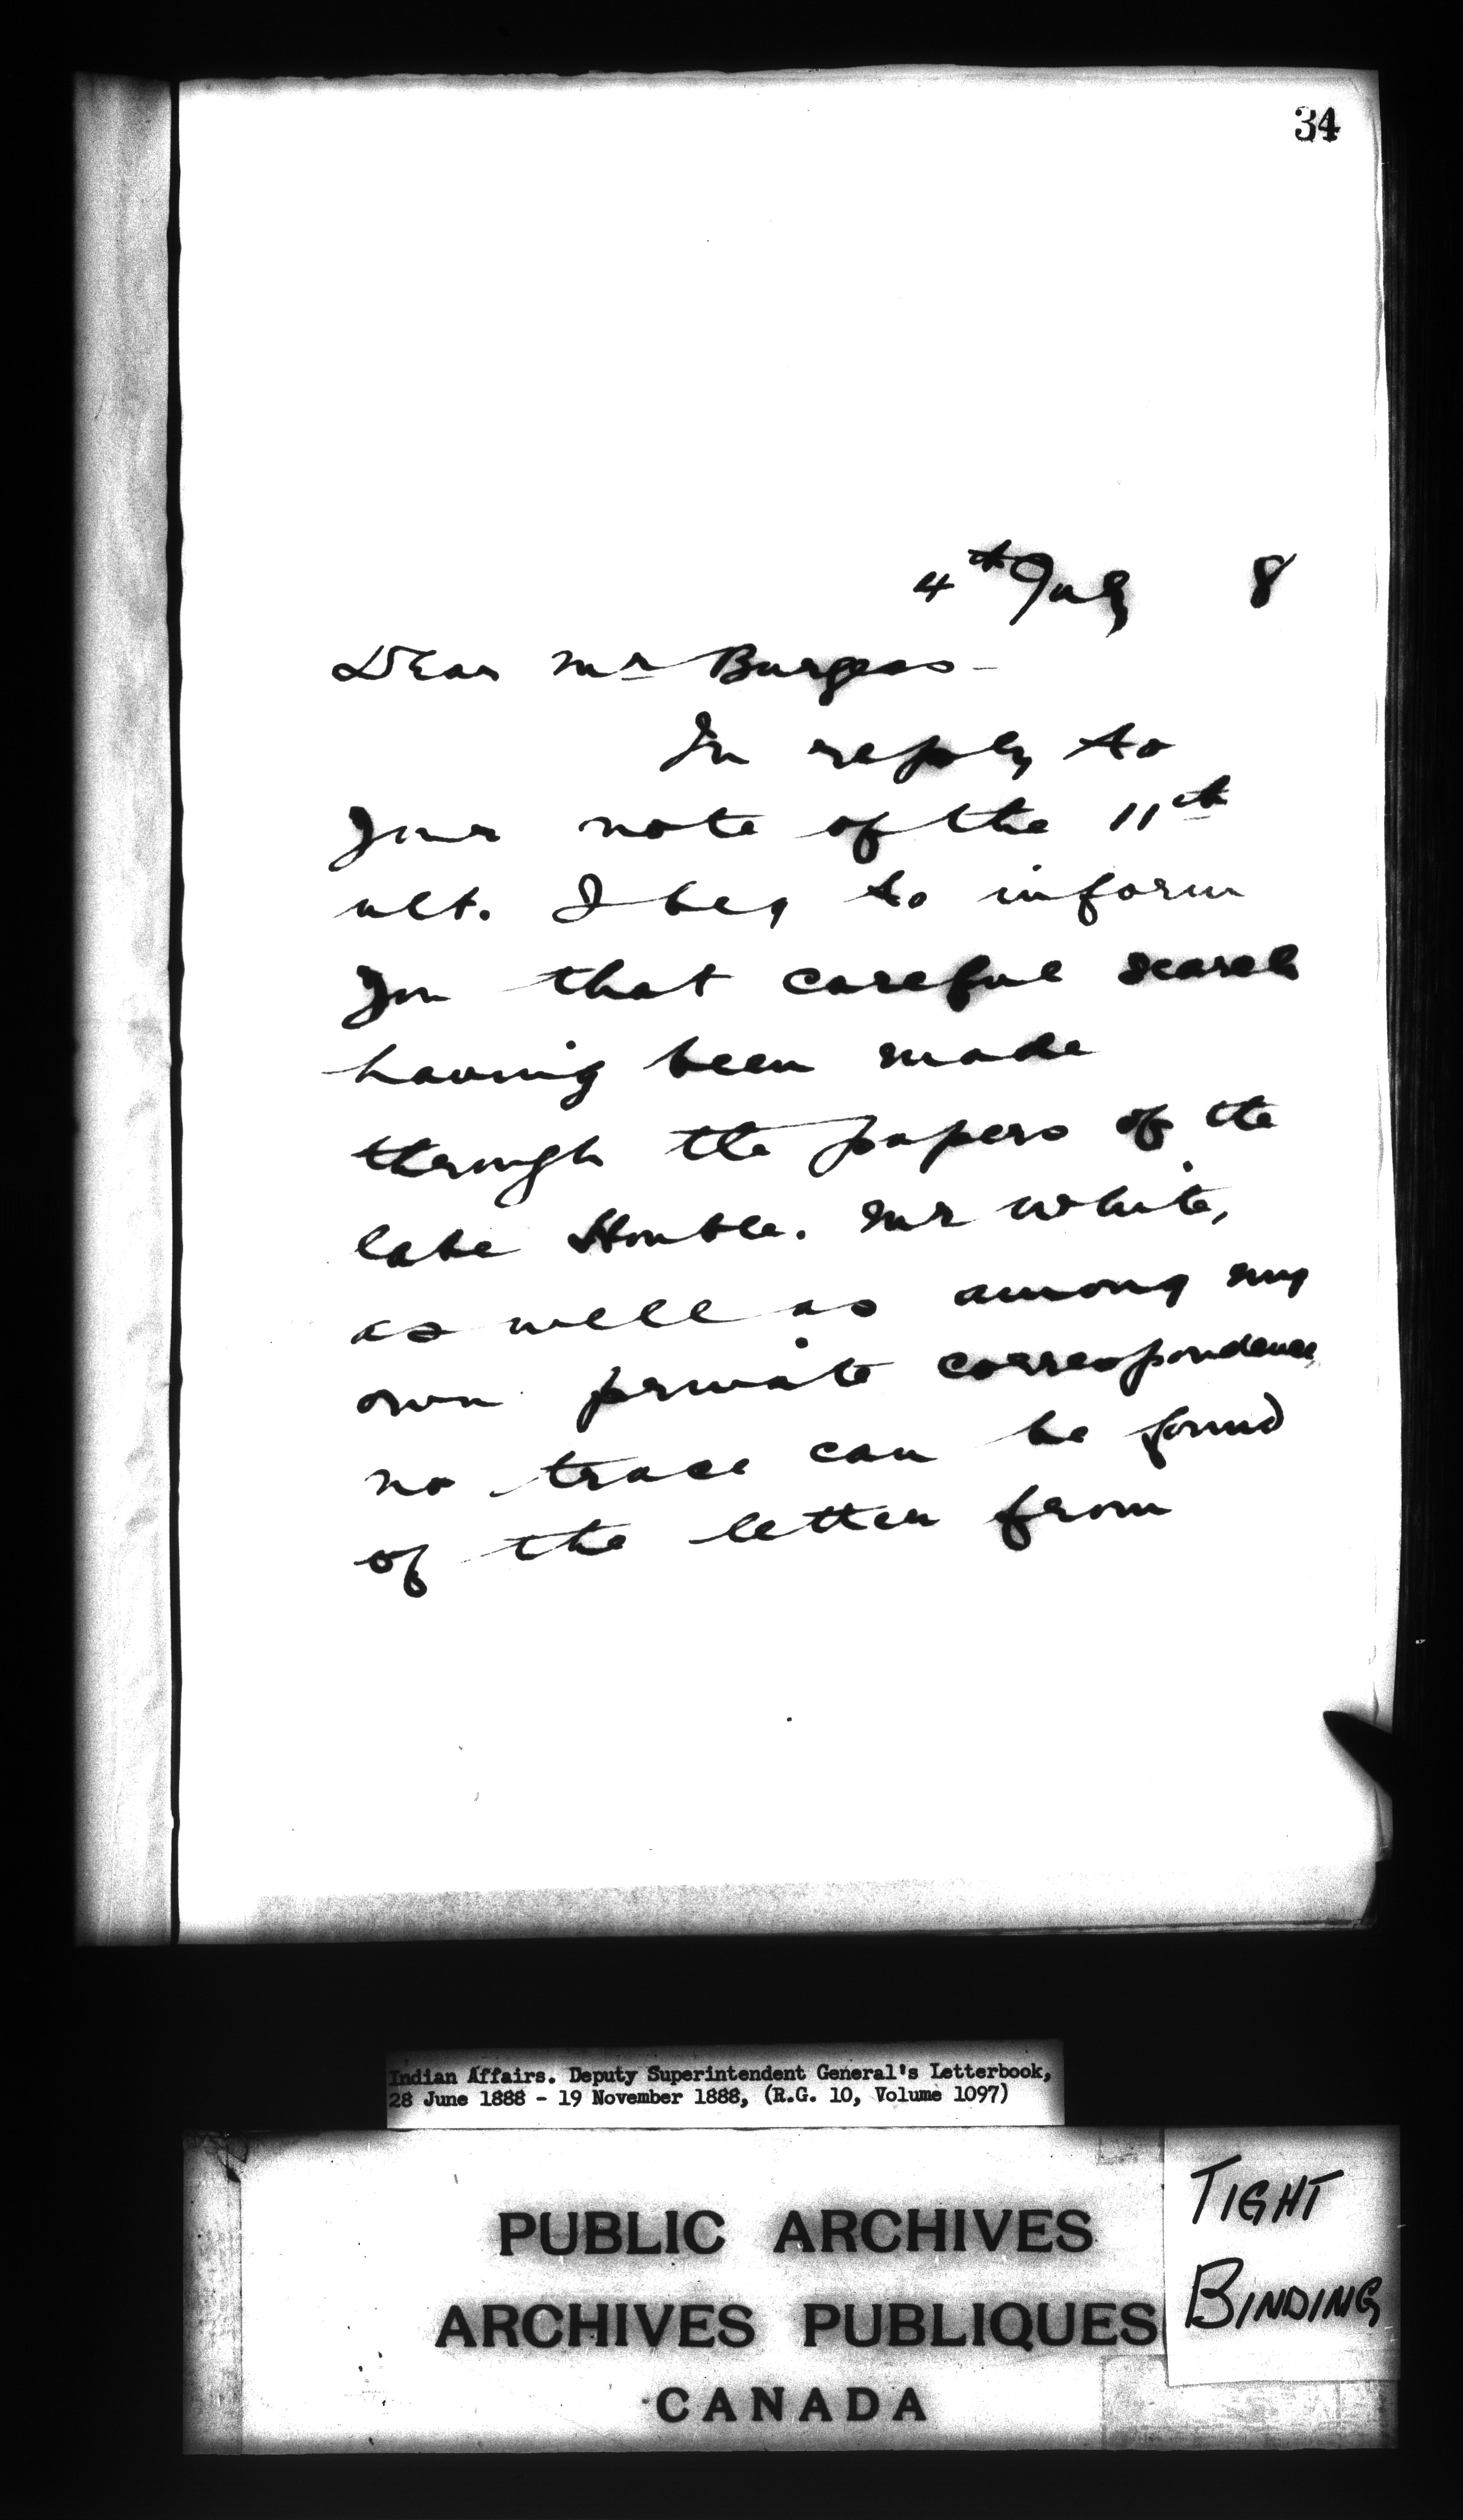 34
4th July 8
Dear Mr Burgess -
In reply to
your note of the 11th
ult. I beg to inform
you that careful search
having been made
through the papers of the
late Honble. Mr White,
as well as among my
own private correspondence
no trace can be found
of the letter from
Indian Affairs. Deputy Superintendent General's Letterbook,
28 June 1888 - 19 November 1888, (R.G. 10, Volume 1097)
PUBLIC ARCHIVES
ARCHIVES PUBLIQUES
CANADA
TIGHT
BINDING